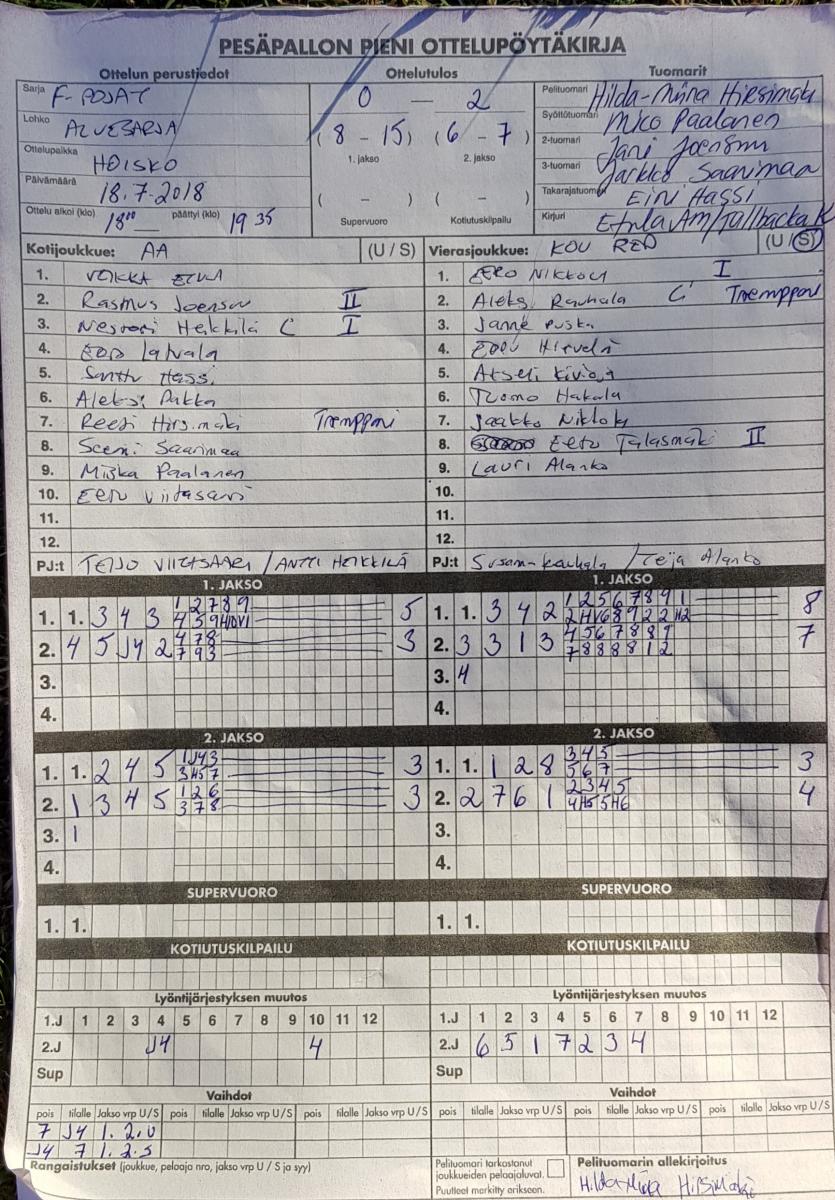 PESÄPALLON PIENI OTTELUPÖYTÄKIRJA
Ottelun perustiedot
Sarja F-POJAT
Lohko
Ottelupaikka HOISKO
Päivämäärä 18.7-2018
Ottelu alkoi (klo) 18 00 päättyi (klo) 19 35
Ottelutulos
0 - 2
(8 - 15) (6 - 7)
1. jakso 2. jakso
( - ) ( - )
Supervuoro Kotiutuskilpailu
Tuomarit
Pelituomari Hilda-Miina Hirsimäki
Syöttötuomari Mico Paalanen
2-tuomari Jani Joensuu
3-tuomari Jarkko Saarimaa
Takarajatuomari Eini Hassi
Kirjuri
Kotijoukkue: AA (U / S)
1.
2. Rasmus Joensuu II
3. Nestori Heikkilä C I
4. Eero Latvala
5. Santtu Hassi
6. Aleksi Pakka
7. Reesi Hirsimäki Tremppari
8. Saarimaa
9. Miska Paalanen
10. Eetu Viitasaari
11.
12.
PJ:t TEIJO VIITASAARI / ANTTI HEIKKILÄ
Vierasjoukkue: KOU RED (U / S)
1. EERO I
2. Aleksi Rauhala C Tremppari
3. Janne Puska
4. Eeou Hirvelä
5. Atseli Kivioja
6. Tuomo Hakala
7. Jaakko
8. Eetu Talasmäki II
9. Lauri Alanko
10.
11.
12.
PJ:t Susanna Rauhala / Teija Alanko
1. JAKSO
1. 1. 3 4 3 1 2 7 8 9 5
2. 4 5 J4 2 4 7 8 3
7 9 3
3.
4.
1. JAKSO
1. 1. 3 4 2 1 2 5 6 7 8 9 1 8
2. 3 3 1 3 4 5 6 7 8 8 9 7
7 8 8 8 8 1 2
3. 4
4.
2. JAKSO
1. 1. 2 4 5 1 J4 3 3
2. 1 3 4 5 1 2 6 3
3 7 8
3. 1
4.
2. JAKSO
1. 1. 1 2 8 3 4 5 3
5 6 7
2. 2 7 6 1 2 3 4 5 4
3.
4.
SUPERVUORO
1. 1.
SUPERVUORO
1. 1.
KOTIUTUSKILPAILU
KOTIUTUSKILPAILU
Lyöntijärjestyksen muutos
1.J 1 2 3 4 5 6 7 8 9 10 11 12
2.J J4 4
Sup
Lyöntijärjestyksen muutos
1.J 1 2 3 4 5 6 7 8 9 10 11 12
2.J 6 5 1 7 2 3 4
Sup
Vaihdot
pois tilalle Jakso vrp U / S pois tilalle Jakso vrp U / S pois tilalle Jakso vrp U / S
7 J4 1. 2. U
J4 7 1. 2. S
Vaihdot
pois tilalle Jakso vrp U / S pois tilalle Jakso vrp U / S pois tilalle Jakso vrp U / S
Rangaistukset (joukkue, pelaaja nro, jakso vrp U / S ja syy)
Pelituomari tarkastanut
joukkueiden pelaajaluval.
Puutteet merkitty erikseen.
Pelituomarin allekirjoitus
Hilda-Miina Hirsimäki